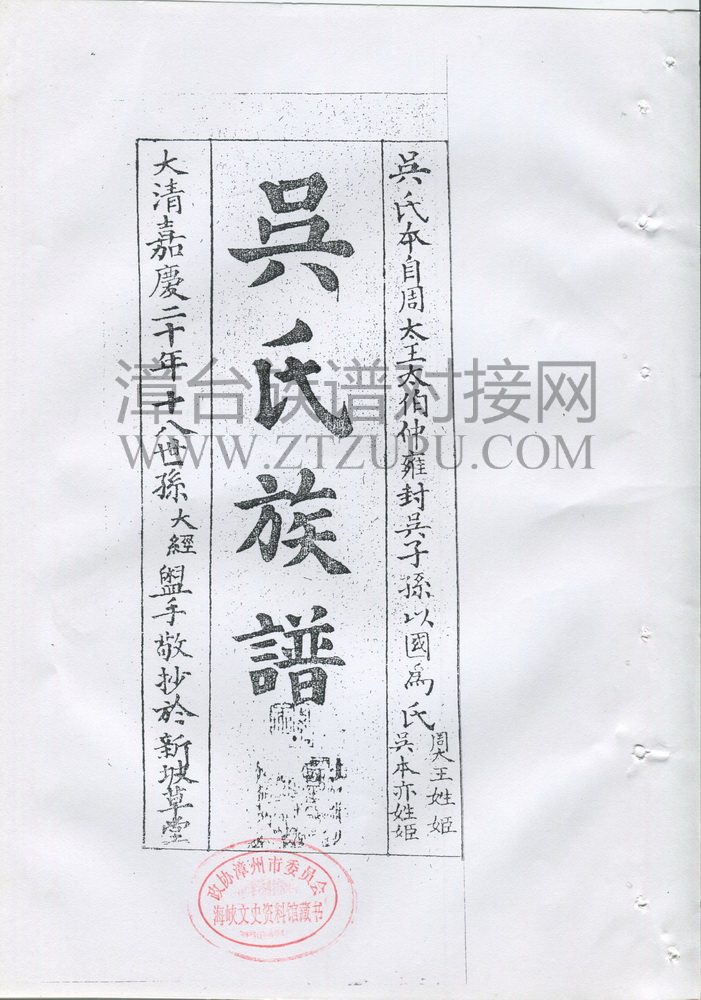 吳氏本自周太王太伯仲雍封吳子孫以國為氏
周太王姓姬
吳本亦姓姬
吳氏族譜
大清嘉慶二十年十八世孫大經盥手敬抄於新坡草堂
漳台族谱对接网
WWW.ZTZUPU.COM
政协漳州市委员会
海峡文史资料馆藏书